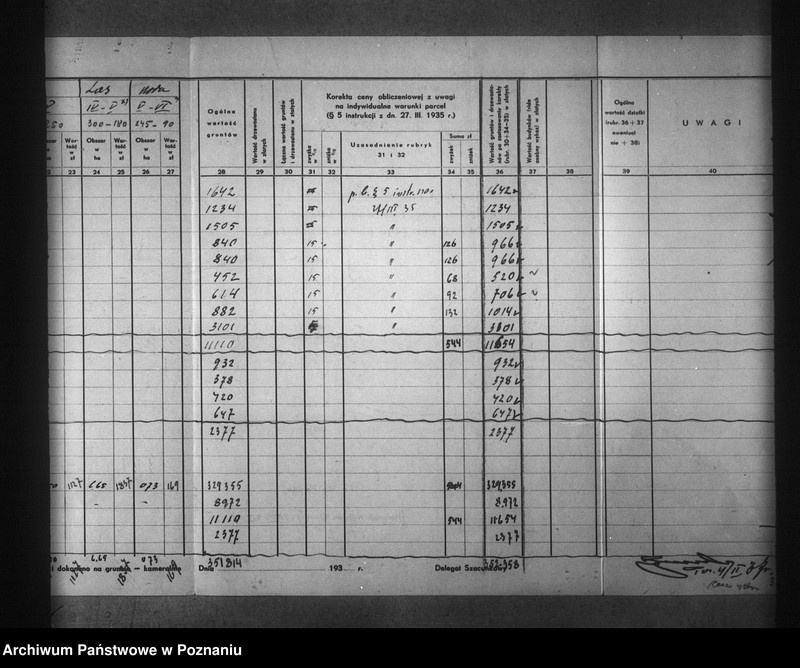 Las nowa
IV-V V-VI
300-180 245-90
Wartość zł Obszar w ha Wartość zł Obszar w ha Wartość zł
Ogólna wartość gruntów
Wartość drzewostanu w złotych
Łączna wartość gruntów i drzewostanu w złotych
Korekta ceny obliczeniowej z uwagi
na indywidualne warunki parcel
(§ 5 instrukcji z dn. 27. III. 1935 r.)
zwyżka w % zniżka w %
Uzasadnienie rubryk
31 i 32
Suma zł
zwyżek zniżek
Wartość gruntów i drzewostanów po zastosowaniu korekty (rubr. 30+34-35) w złotych
Wartość budynków
Ogólna wartość działki (rubr. 36 + 37 ewentualnie + 38)
UWAGI
23 24 25 26 27 28 29 30 31 32 33 34 35 36 37 38 39 40
1642 p. 6. § 5 instr. 1642
1234 27/III 35 1234
1505 " 1505
840 15 " 126 966
840 15 " 126 966
452 15 " 68 520
614 15 " 92 706
882 15 " 132 1014
3101 " 3101
11110 544 11654
932 932
378 378
420 420
647 647
2377 2377
1127 6.65 1837 073 169 329355 329355
- - 8972 8972
11110 544 11654
2377 2377
6.65 073
dokonano na gruncie – kameralnie Dnia 193 r. Delegat Szacunkowy
351814 352.358
Archiwum Państwowe w Poznaniu